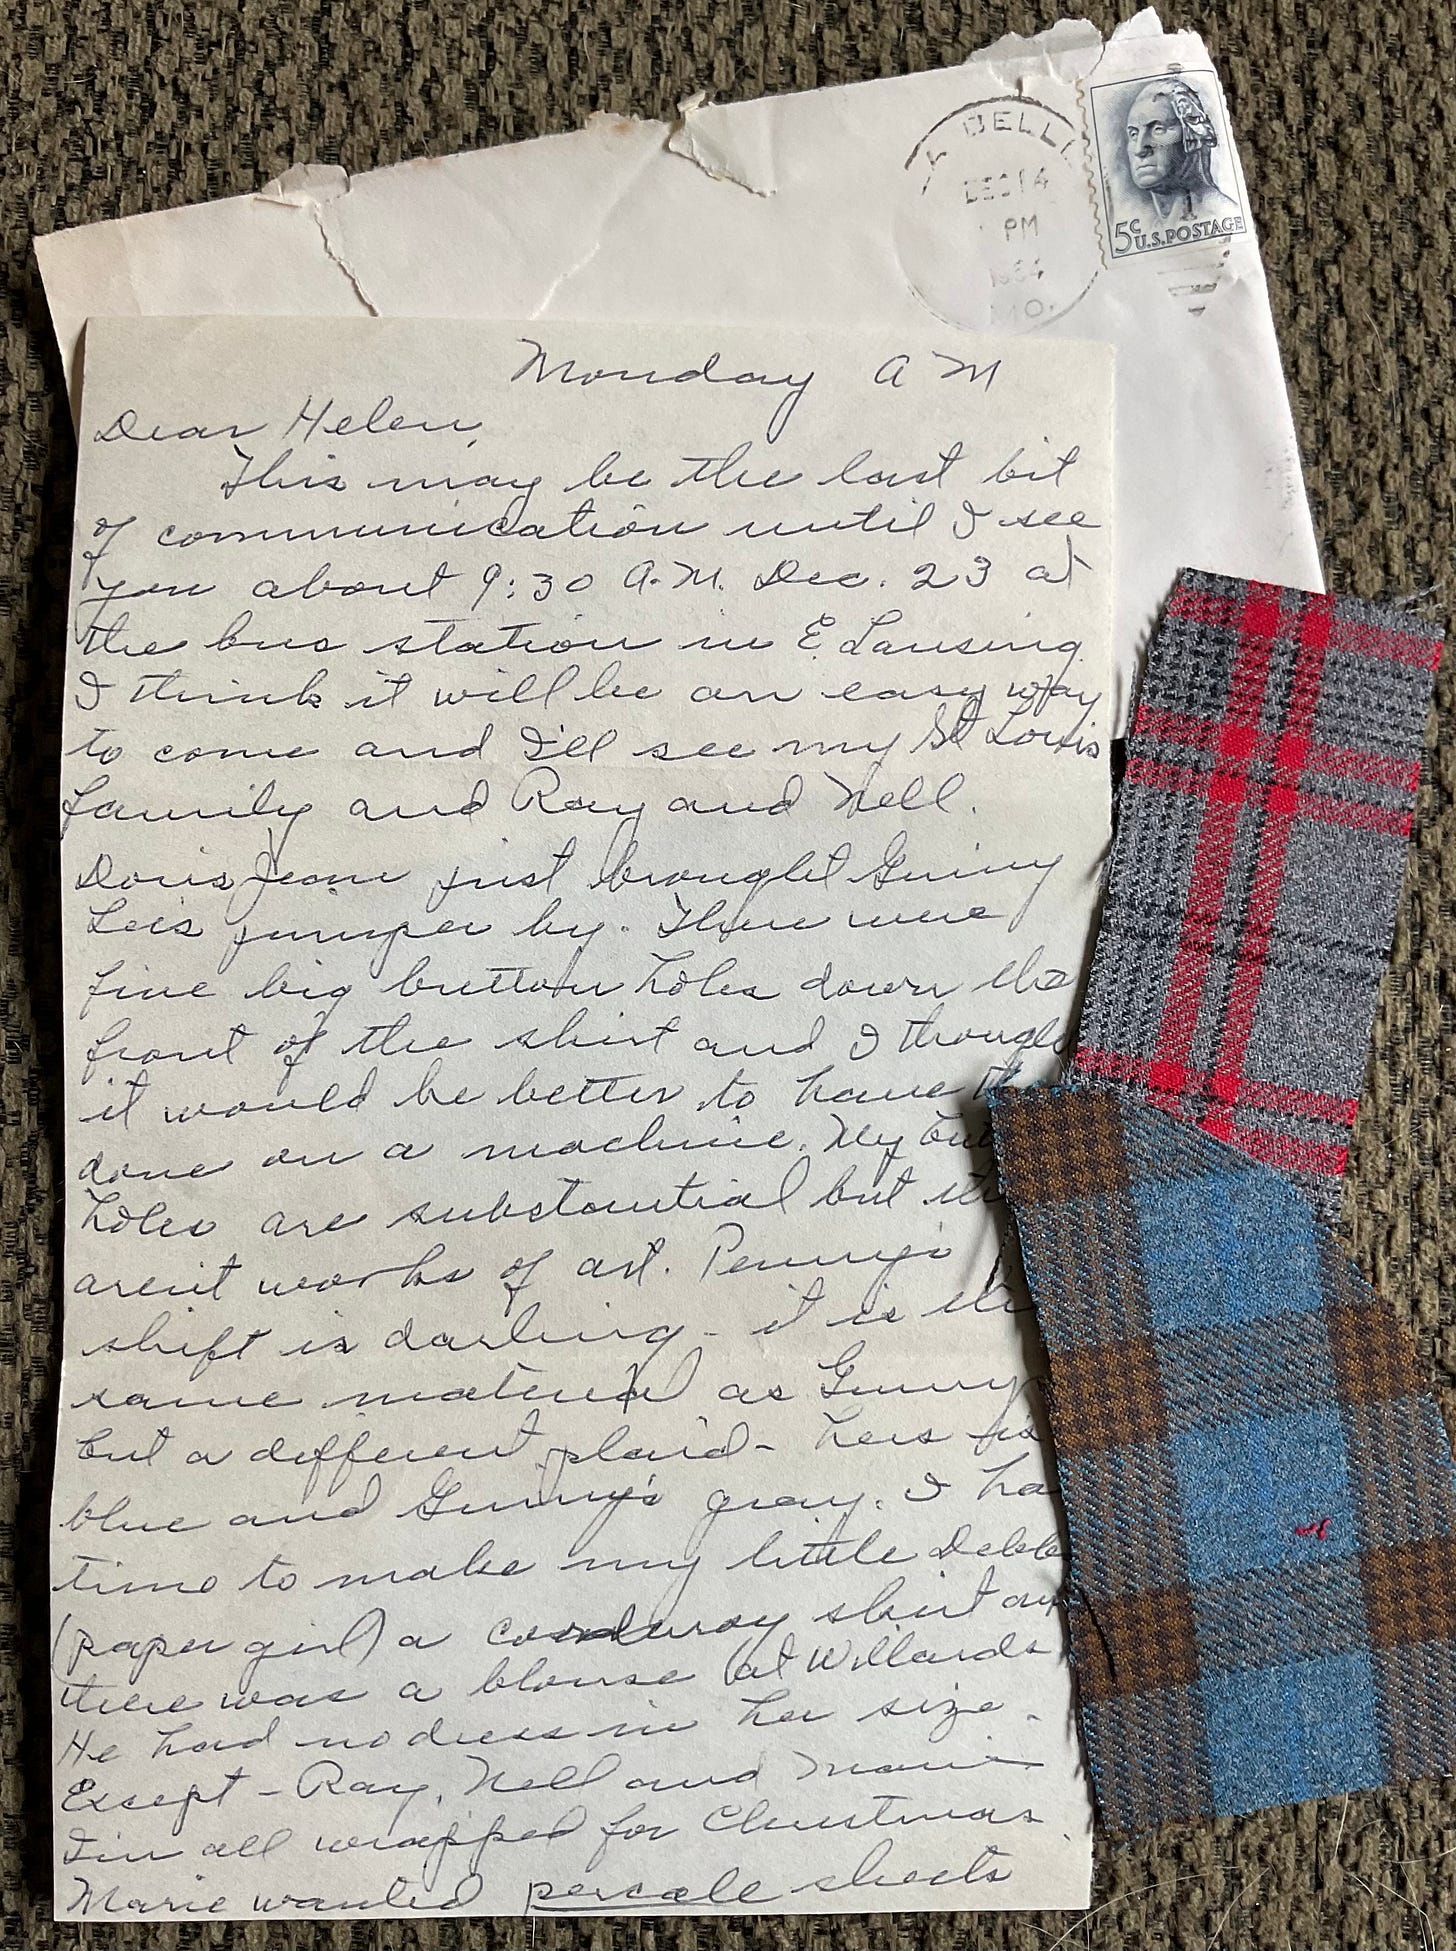 BELL
DEC 14
PM
1964
MO.
5c
U.S. POSTAGE
Monday AM
Dear Helen,
This may be the last bit
of communication until I see
you about 9:30 A.M. Dec. 23 at
the bus station in E. Lansing.
I think it will be an easy way
to come and I'll see my St Louis
family and Ray and Nell.
Doris Jean just brought Ginny
Lee's jumper by. There were
five big button holes down the
front of the skirt and I though
it would be better to have th
done on a machine. My but
holes are substantial but the
aren't works of art. Penny's
shift is darling - it is the
same material as Ginny
but a different plaid - hers is
blue and Ginny's gray. I ha
time to make my little Debb
(paper girl) a corduroy skirt an
there was a blouse at Willards
He had no dress in her size.
Except - Ray, Nell and Marie
I'm all wrapped for Christmas.
Marie wanted percale sheets